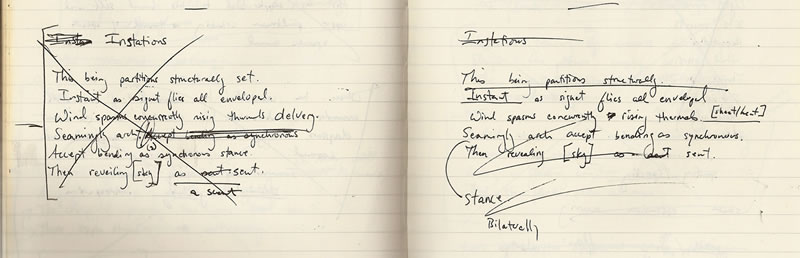 Instations
This being partitions structurally set.
Instant as signet flies all enveloped.
Wind spasms concurrently rising thumls delvery.
Seamingly arch accept bending as synchronous
Accept bending (a)s synchronous stance.
Then reveiling [sky] as sent sent.
a sent
Instations
This being partitions structurally.
Instant as signet flies all enveloped
Wind spasms concurrently rising thermals. [shoot/heat]
Seamingly arch accept bending as synchronous.
Then revealing [sky] as sent sent.
Stance
Bilaterally